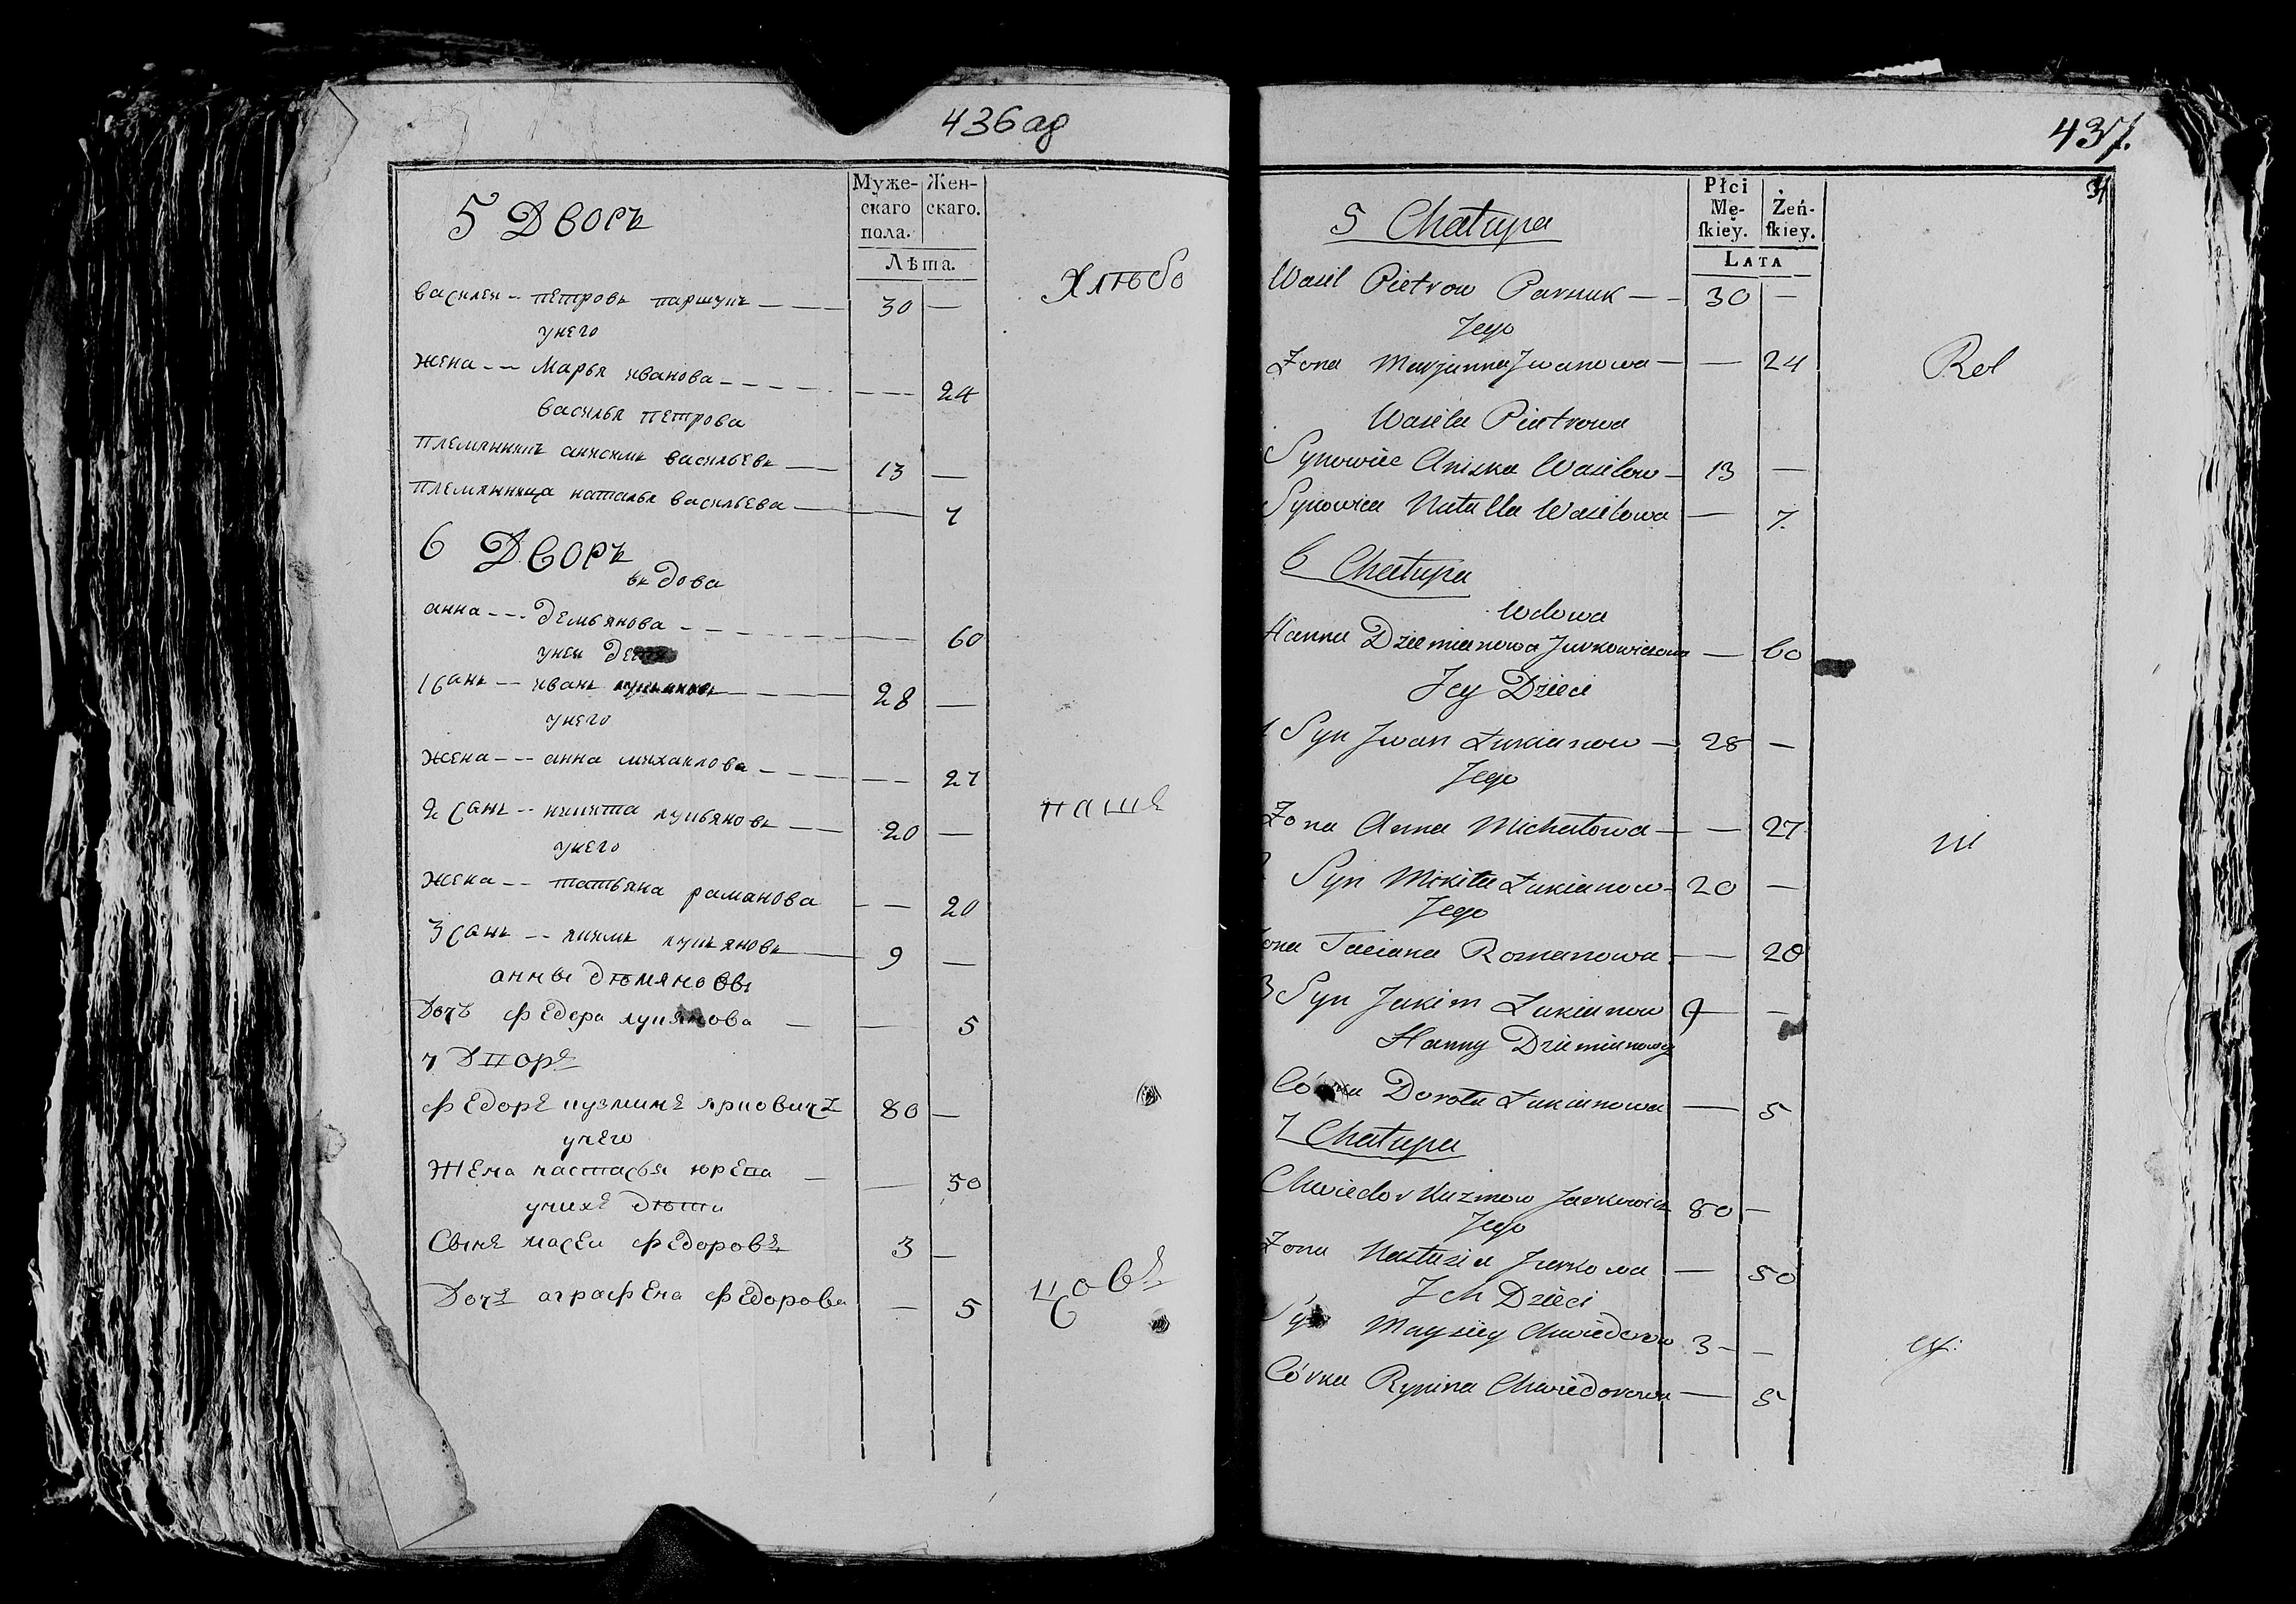 436 об
5 Дворъ
Муже-
скаго
пола.
Жен-
скаго.
Лѣта.
Хлѣбо
василеи -- петровъ паршукъ 30 —
унего
жена -- Марья иванова — 24
василья петрова
племянникъ анисимъ васильевъ 13 —
племянница наталья васильева — 7
6 Дворъ
въдова
анна --- демьянова — 60
унеи
1 санъ -- иванъ 28 —
унего
жена --- анна михаилова — 27
паше
2 санъ -- никита лукьяновъ 20 —
унего
жена -- татьяна раманова — 20
3 санъ -- якимъ лукьяновъ 9 —
анны дѣмяновы
Дочъ федора лукянова — 5
7 Дворъ
федоръ кузминъ юрковичъ 80 —
унего
жена настасья юрева — 50
унихъ дѣти
Сынъ масеи федоровъ 3 —
Дочъ аграфена федорова — 5
цовъ
437.
5 Chałupa
Płci
Mę-
skiey.
Żeń-
skiey.
LATA
Wasil Pietrow Parszuk — 30 —
Jego
Żona Maryanna Jwanowa — — 24
Rol
Wasila Pietrowa
Synowiec Aniska Wasilow — 13 —
Synowica Natalla Wasilowa — 7.
6 Chałupa
Wdowa
Hanna Dziemianowa Jurkowiczowa — 60
Jey Dzieci
1 Syn Jwan Łukianow — 28 —
Jego
Żona Anna Michałowa — — 27
ni
Syn Mikita Łukianow 20 —
Jego
ona Taciana Romanowa — 20
3 Syn Jakim Łukianow 9 —
Hanny Dziemianowey
Córka Dorota Łukianowa — 5
7 Chałupa
Chwiedor Kuzmow Jurkowicz 80 —
Jego
Żona Nastazia Jurkowa — 50
Jch Dzieci
Syn Maysiey Chwiedorow 3 — —
cy.
Córka Rypina Chwiedorowa — 5